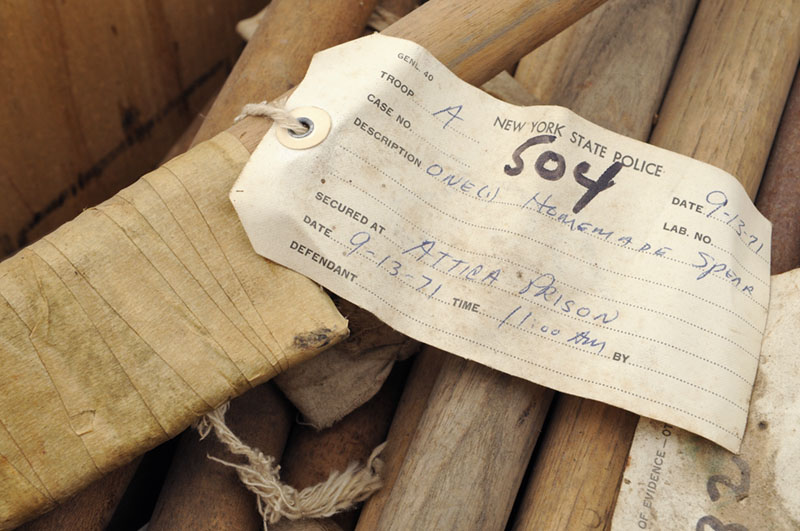 GENL 40
NEW YORK STATE POLICE
TROOP A
504
CASE NO.
DATE 9-13-71
DESCRIPTION ONE(1) HOMEMADE SPEAR
LAB. NO.
SECURED AT ATTICA PRISON
DATE 9-13-71 TIME 11:00 AM BY
DEFENDANT
OF EVIDENCE-